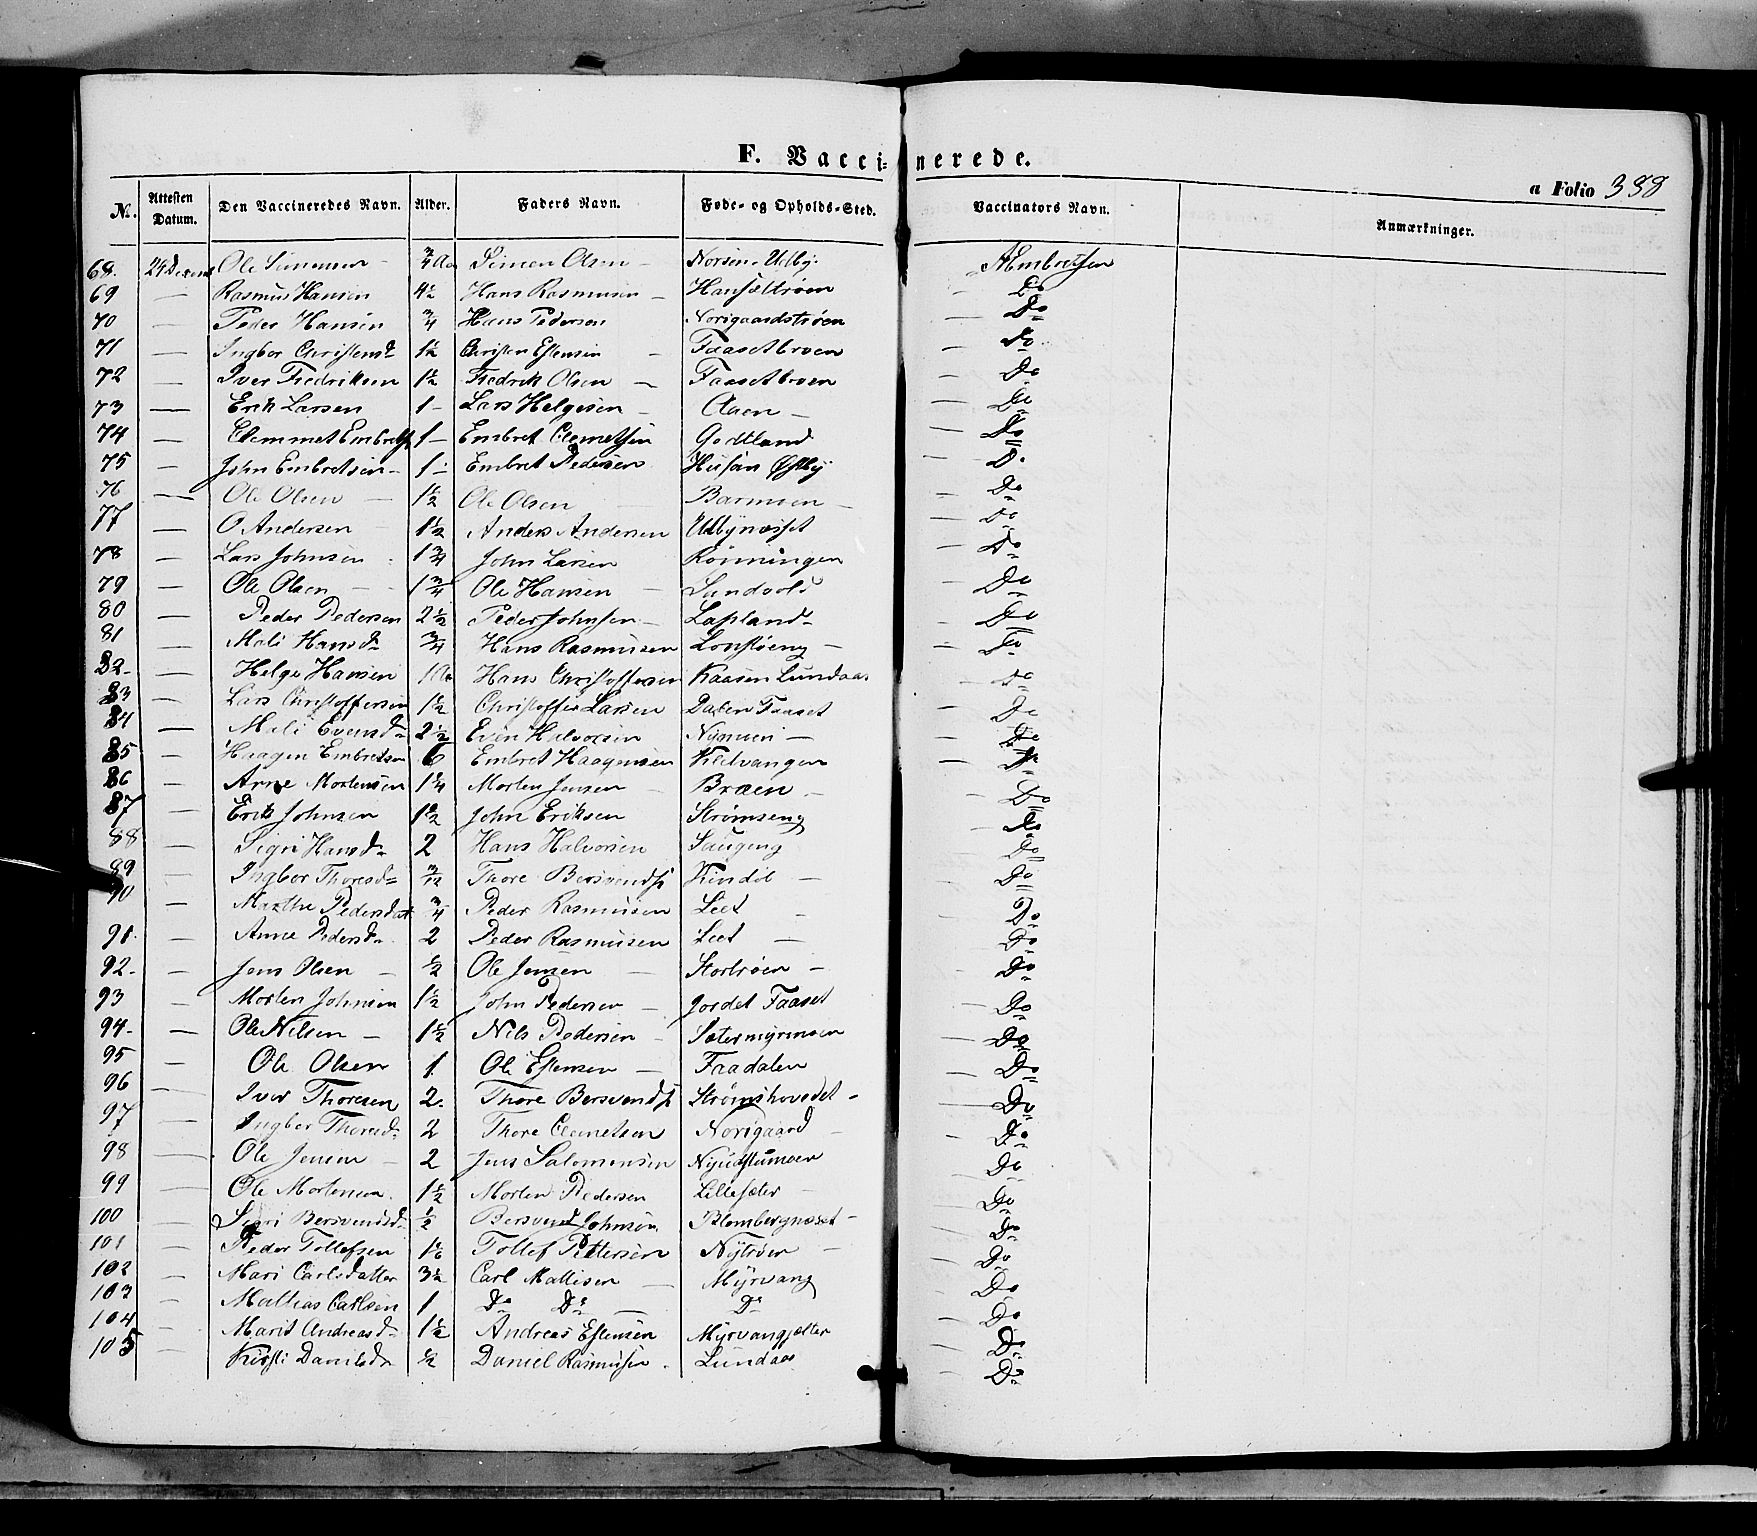 F. Vaccinerede.
a Folio 388
No. Attesten Datum. Den Vaccineredes Navn. Alder. Faders Navn. Føde- og Opholds-Sted. Vaccinators Navn. Anmærkninger.
68. 24 Ole Simensen — 3/4 Simen Olsen — Udby.
69 — Rasmus Hansen 4 1/2 Hans Rasmusen — Do
70 — Peder Hansen 3/4 Hans Pedersen Norigaardstrøen — Do
71 — Ingbor Christensd 1 1/2 Christen Estensen — Faasetbroen — Do
72 — Iver Fredriksen 1 1/2 Fredrik Olsen — Faasetbroen — Do
73 — Erik Larsen 1 — Lars Helgesen — Aaen — — Do
74 — Clemmet Embrets 1 — Embret Clemetsen Godtland — Do
75 — John Embretsen — 1 — Embret Pedersen Husan Østby — Do
76 — Ole Olsen — 1 1/2 Ole Olsen — Do
77 — O Andersen — 1 1/2 Anders Andersen Udbynæsset — Do
78 — Lars Johnsen 1 3/4 John Larsen Rønningen — Do
79 — Ole Olsen — 1 3/4 Ole Hansen — Sundvold — Do
80 — Peder Pedersen 2 1/2 Peder Johnsen — Lapland — Do
81 — Mali Hansd 3/4 Hans Rasmusen Lonstøeng — — Do
82 — Helge Hansen 1 Hans Christoffersen Kaasen Lundaas — Do
83 — Lars Christoffersen 1 1/2 Christoffer Larsen Dalen Faaset — Do
84 — Mali Evensd 2 1/2 Even Halvorsen Nymoen — — Do
85 — Haagen Embretsen 6 Embret Haagensen Kildvangen — Do
86 — Arne Mortensen 1 1/4 Morten Jensen — Bræen — — Do
87 — Erik Johnsen 1 1/2 John Eriksen Strømseng — Do
88 — Sigri Hansd 2 Hans Halvorsen Saugeng — Do
89 — Ingbor Thoresd 3/12 Thore Bersvends Kindil — — Do
90 — Marthe Pedersdat 3/4 Peder Rasmusen Leet — — Do
91. — Anne Pedersd 2 Peder Rasmusen Leet — — Do
92. — Jens Olsen — 1/2 Ole Jensen — Stortrøen — — Do
93 — Morten Johnsen 1 1/2 John Pedersen — Jordet Faaset — Do
94. — Ole Nilsen — 1 1/2 Nils Pedersen — Sætermyrmoen — Do
95 — Ole Olsen 1. Ole Estensen — Faadalen — Do
96 — Iver Thoresen 2. Thore Bersvends Strømshovedet — — Do
97 — Ingbor Thoresd 2 Thore Clemetsen Norigaard — — Do
98 — Ole Jensen — 2 Jens Salomonsen — Do
99 — Ole Mortensen. 1 1/2 Morten Pedersen Lillesæter — — Do
100 — Sigri Bersvendsd 1/2 Bersvend Johnsen Blombergnæset — — Do
101 — Peder Tollefsen Tollef Pettersen Nytrøen — — Do
102 — Mari Carlsdatter 3 1/2 Carl Mattisen — Myrvang — Do
103 — Mattias Carlsen 1 Do Do — Do — Do
104 — Marit Andreasd 1 1/2 Andreas Estensen — Do
105 — Kirsti Danielsd 1/2 Daniel Rasmusen. Lundaas — Do